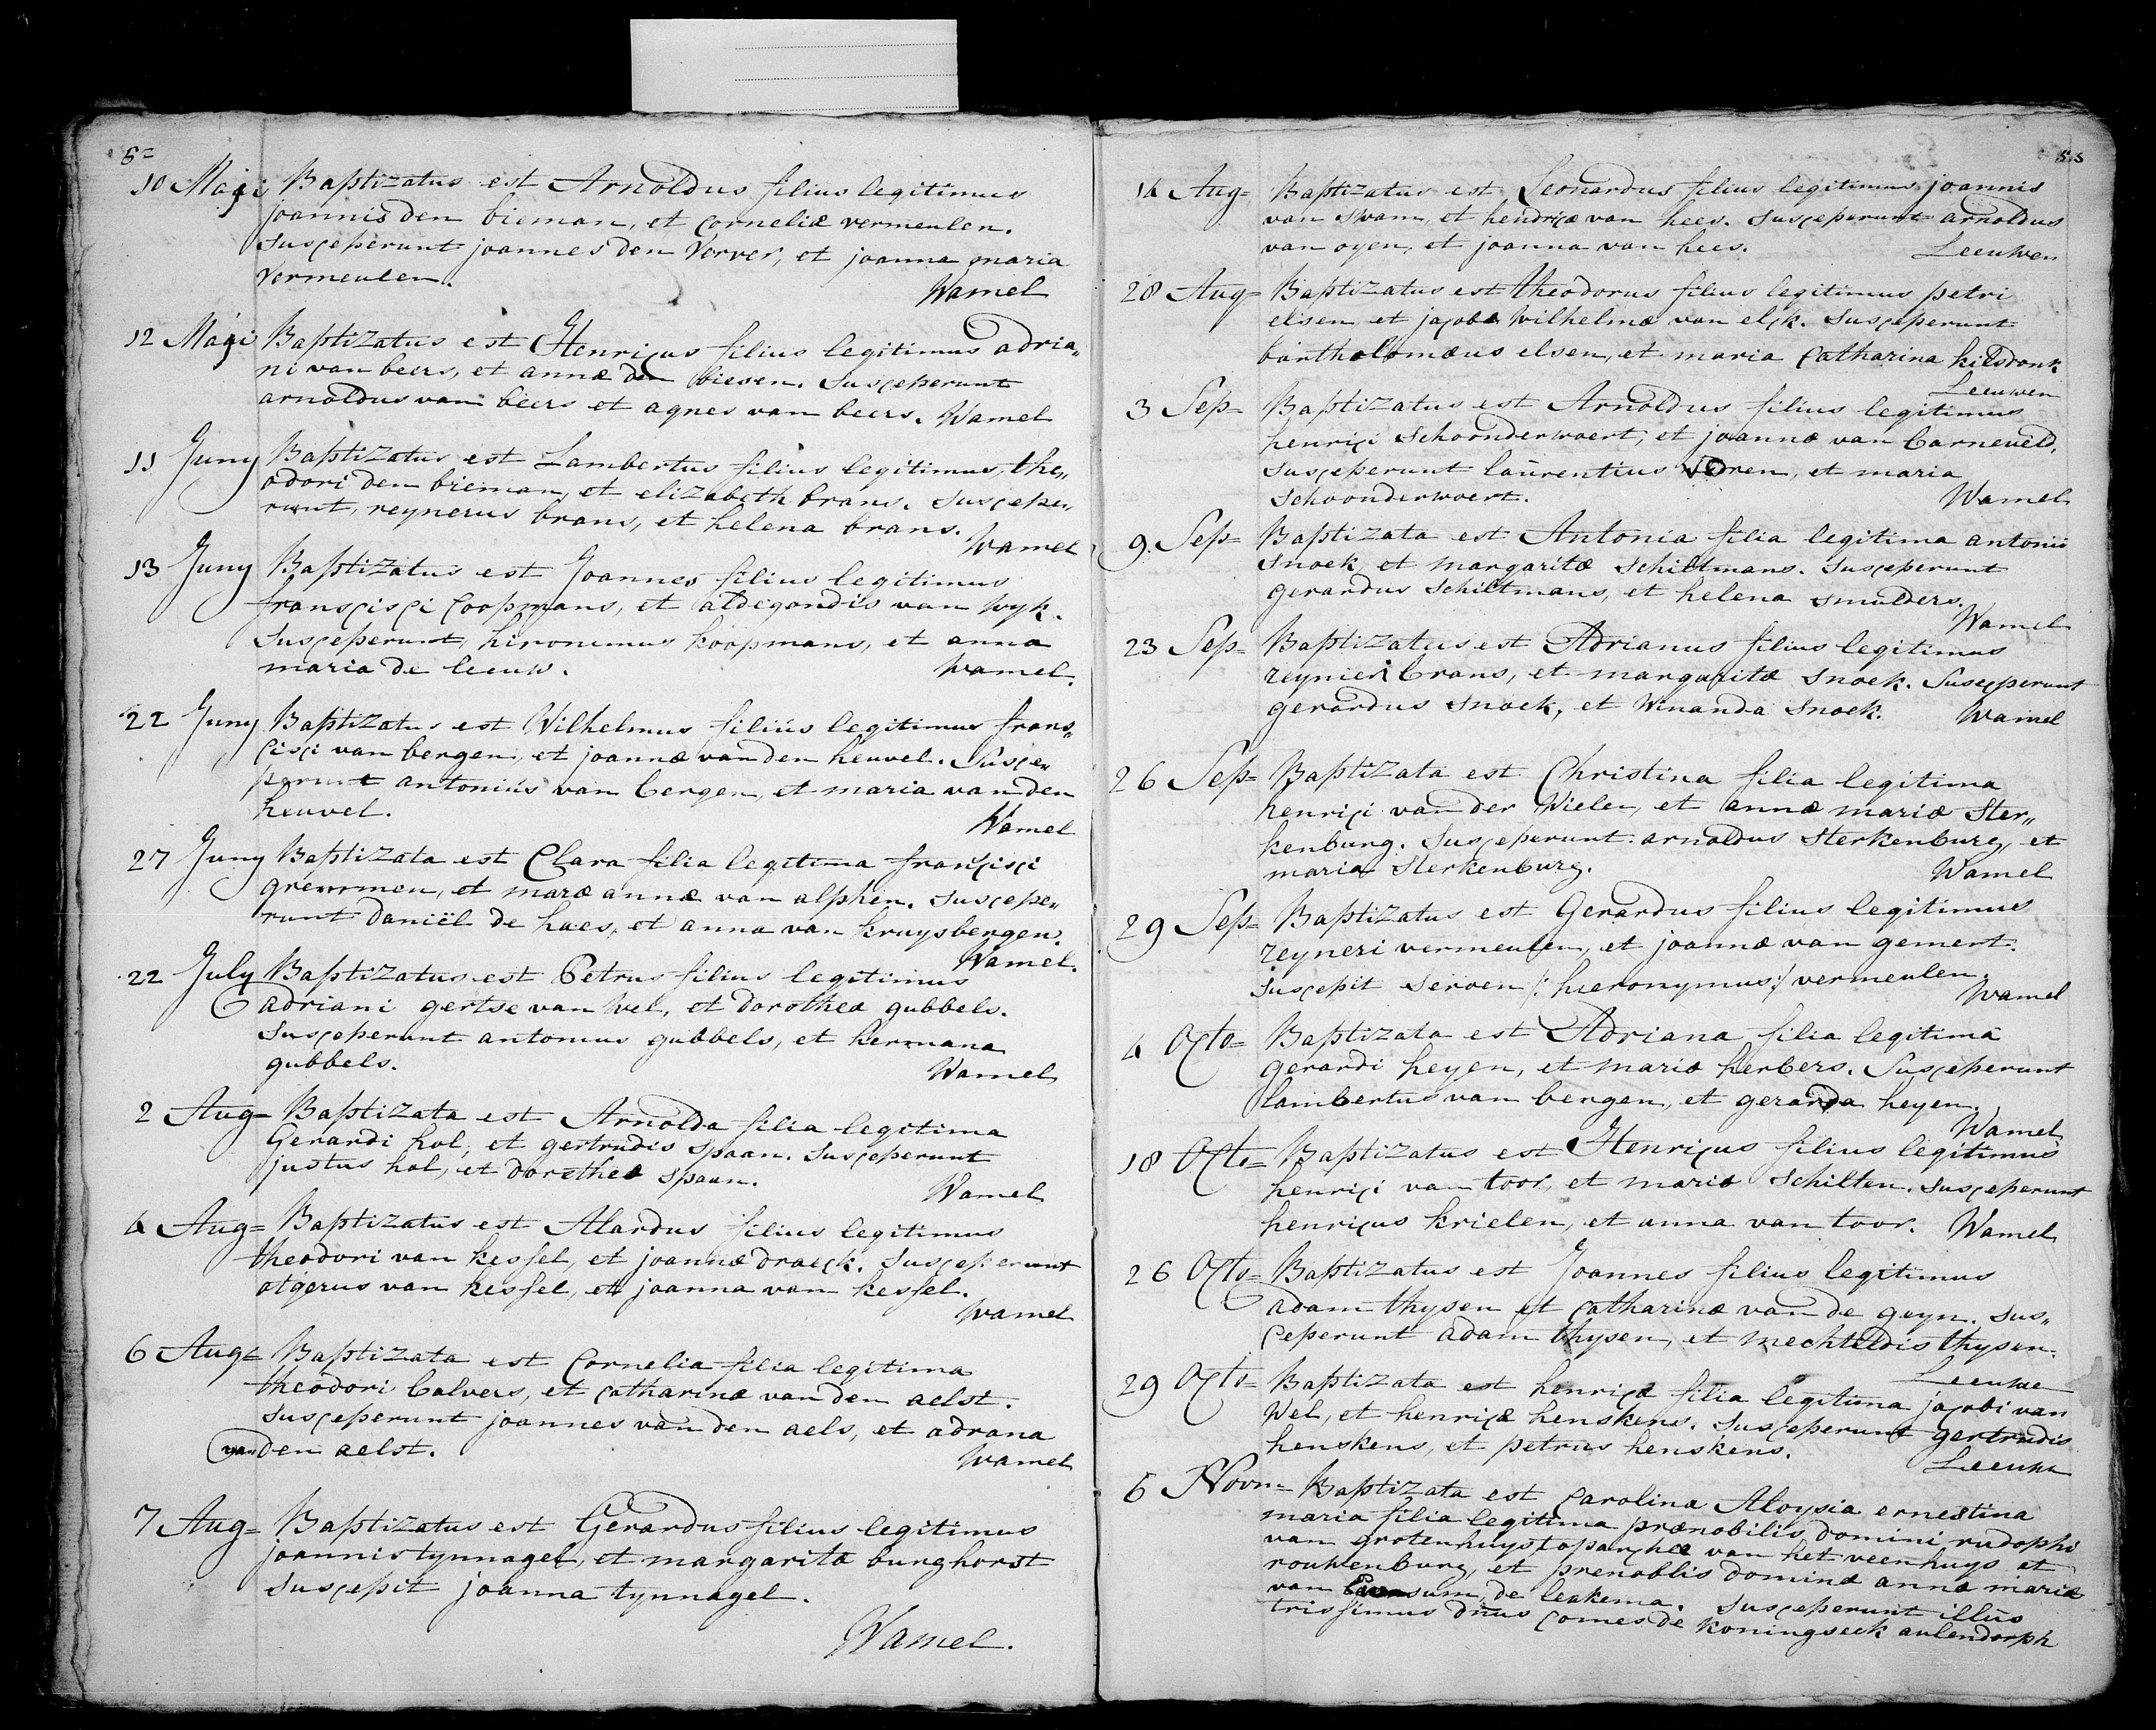 52
10 Maji Baptizatus est Arnoldus filius legitimus
joannis den bieman, et corneliæ vermeulen.
susceperunt joannes den Verver, et joanna maria
vermeulen.
Wamel
12 Maji Baptizatus est Henricus filius legitimus adria„
ni van beers, et annæ den biesen. susceperunt
arnoldus van beers et agnes van beers. Wamel
11 Juny Baptizatus est Lambertus filius legitimus, the„
odori den bieman, et elizabeth brans. suscepe„
runt, reynerus brans, et helena brans.
Wamel
13 Juny Baptizatus est Joannes filius legitimus
franscisci coopmans, et aldegondis van wyk.
susceperunt hironimus koopmans, et anna
maria de leeuw. Wamel.
22 Juny Baptizatus est Wilhelmus filius legitimus frans„
cisci van bergen, et joannæ van den heuvel. Susce„
perunt antonius van bergen, et maria van den
heuvel.
Wamel
27 Juny Baptizata est Clara filia legitima francisci
gremmen, et maræ annæ van alphen. suscepe„
runt daniël de haes, et anna van kruysbergen.
Wamel.
22 July Baptizatus est Petrus filius legitimus
adriani gertse van wel, et dorotheæ gubbels.
susceperunt antonius gubbels, et hermana
gubbels. Wamel
2 Aug= Baptizata est Arnolda filia legitima
Gerardi hol, et gertrudis spaan. susceperunt
justus hol, et dorotheæ spaan.
Wamel
4 Aug= Baptizatus est Alardus filius legitimus
theodori van kessel, et joannæ draeck. susceperunt
otgerus van kessel, et joanna van kessel.
Wamel
6 Aug= Baptizata est Cornelia filia legitima
theodori balvers, et catharinæ van den aelst.
susceperunt joannes van den aels, et adrana
van den aelst. Wamel
7 Aug= Baptizatus est Gerardus filius legitimus
joannis tynnagel, et margaritæ burghorst
suscepit joanna tynnagel.
Wamel.
53
14 Aug= Baptizatus est Leonardus filius legitimus joannis
van swam, et hendricæ van hees. susceperunt arnoldus
van oyen, et joanna van hees. Leeuwen
28 Aug= Baptizatus est theodorus filius legitimus petri
elsen et jacobæ wilhelmæ van elck. susceperunt
bartholomæus elsen, et maria catharina kilsdonk
Leeuwen
3 Sep= Baptizatus est Arnoldus filius legitimus
henrici schoonderwoert, et joannæ van barneveld.
susceperunt laurentius voren, et maria
schoonderwoert. Wamel
9. Sep= Baptizata est Antonia filia legitima antonii
snoek, et margaritæ schiltmans. susceperunt
gerardus schiltmans, et helena smulders.
Wamel
23 Sep= Baptizatus est Adrianus filius legitimus
reynieri brans, et margaritæ snoek. susceperunt
gerardus snoek, et winanda snoek. Wamel
26 Sep= Baptizata est Christina filia legitima
henrici van der wielen, et annæ mariæ ster„
kenburg. susceperunt arnoldus sterkenburg, et
maria sterkenburg. Wamel
29 Sep= Baptizatus est Gerardus filius legitimus
reyneri vermeulen, et joannæ van gement.
suscepit seroen /: hieronymus :/ vermeulen.
Wamel
4 Octo= Baptizata est Adriana filia legitima
gerardi heyen, et mariæ herbers. susceperunt
lambertus van bergen, et gerarda heyen.
Wamel
18 Octo= Baptizatus est Henricus filius legitimus
henrici van toor, et mariæ schilten. susceperunt
henricus krielen, et anna van toor. Wamel
26 Octo= Baptizatus est Joannes filius legitimus
adam thysen et catharinæ van de geyn. sus„
ceperunt adam thysen, et mechteldis thysen.
Leeuwe
29 Octo= Baptizata est henricæ filia legitima jacobi van
wel, et henricæ henskens. susceperunt gertrudis
henskens, et petrus henskens.
Leeuwe
6 Novm= Baptizata est carolina Aloysia ernestina
maria filia legitima prænobilis domini rudolphi
van grotenhuys toparchæ van het veenhuys et
rouwenburg, et prenoblis dominæ annæ mariæ
van sum, de leskema. susceperunt illūs
trissimus dn̄us comes de koningseck aulendorph